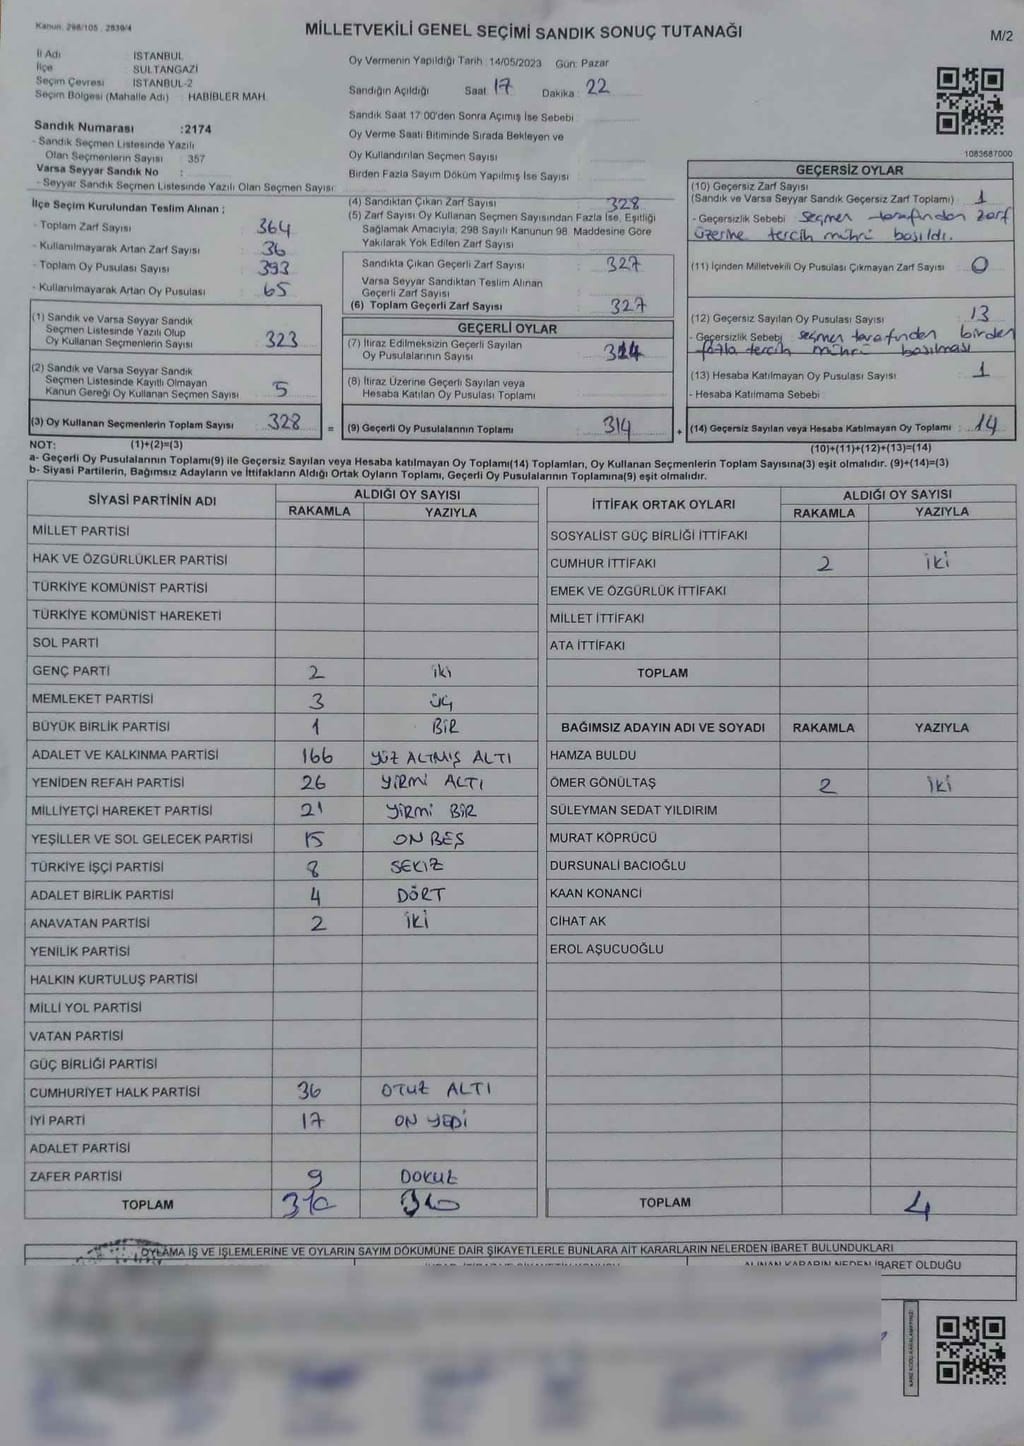 Kanun 298/105 2839/4
MİLLETVEKİLİ GENEL SEÇİMİ SANDIK SONUÇ TUTANAĞI
M/2
İl Adı İSTANBUL
İlçe SULTANGAZİ
Seçim Çevresi İSTANBUL-2
Seçim Bölgesi (Mahalle Adı) : HABİBLER MAH.
Oy Vermenin Yapıldığı Tarih : 14/05/2023 Gün: Pazar
Sandığın Açıldığı Saat 17 Dakika : 22
Sandık Saat 17:00'den Sonra Açımış İse Sebebi
Oy Verme Saati Bitiminde Sırada Bekleyen ve
Oy Kullandırılan Seçmen Sayısı
Birden Fazla Sayım Döküm Yapılmış İse Sayısı
Sandık Numarası :2174
- Sandık Seçmen Listesinde Yazılı
Olan Seçmenlerin Sayısı : 357
Varsa Seyyar Sandık No :
- Seyyar Sandık Seçmen Listesinde Yazılı Olan Seçmen Sayısı :
İlçe Seçim Kurulundan Teslim Alınan ;
- Toplam Zarf Sayısı : 364
- Kullanılmayarak Artan Zarf Sayısı : 36
- Toplam Oy Pusulası Sayısı : 393
- Kullanılmayarak Artan Oy Pusulası : 65
(1) Sandık ve Varsa Seyyar Sandık
Seçmen Listesinde Yazılı Olup
Oy Kullanan Seçmenlerin Sayısı : 323
(2) Sandık ve Varsa Seyyar Sandık
Seçmen Listesinde Kayıtlı Olmayan
Kanun Gereği Oy Kullanan Seçmen Sayısı : 5
(3) Oy Kullanan Seçmenlerin Toplam Sayısı : 328
(4) Sandıktan Çıkan Zarf Sayısı : 328
(5) Zarf Sayısı Oy Kullanan Seçmen Sayısından Fazla İse, Eşitliği
Sağlamak Amacıyla; 298 Sayılı Kanunun 98. Maddesine Göre
Yakılarak Yok Edilen Zarf Sayısı :
Sandıkta Çıkan Geçerli Zarf Sayısı : 327
Varsa Seyyar Sandıktan Teslim Alınan
Geçerli Zarf Sayısı :
(6) Toplam Geçerli Zarf Sayısı : 327
GEÇERLİ OYLAR
(7) İtiraz Edilmeksizin Geçerli Sayılan
Oy Pusulalarının Sayısı : 314
(8) İtiraz Üzerine Geçerli Sayılan veya
Hesaba Katılan Oy Pusulası Toplamı :
= (9) Geçerli Oy Pusulalarının Toplamı : 314 +
1083687000
GEÇERSİZ OYLAR
(10) Geçersiz Zarf Sayısı
(Sandık ve Varsa Seyyar Sandık Geçersiz Zarf Toplamı) : 1
- Geçersizlik Sebebi : seçmen tarafından zarf
üzerine tercih mührü basıldı.
(11) İçinden Milletvekili Oy Pusulası Çıkmayan Zarf Sayısı : 0
(12) Geçersiz Sayılan Oy Pusulası Sayısı : 13
- Geçersizlik Sebebi : seçmen tarafından birden
fazla tercih mührü basılması
(13) Hesaba Katılmayan Oy Pusulası Sayısı : 1
- Hesaba Katılmama Sebebi :
(14) Geçersiz Sayılan veya Hesaba Katılmayan Oy Toplamı : 14
NOT: (1)+(2)=(3)
(10)+(11)+(12)+(13)=(14)
a- Geçerli Oy Pusulalarının Toplamı(9) ile Geçersiz Sayılan veya Hesaba katılmayan Oy Toplamı(14) Toplamları, Oy Kullanan Seçmenlerin Toplam Sayısına(3) eşit olmalıdır. (9)+(14)=(3)
b- Siyasi Partilerin, Bağımsız Adayların ve İttifakların Aldığı Ortak Oyların Toplamı, Geçerli Oy Pusulalarının Toplamına(9) eşit olmalıdır.
SİYASİ PARTİNİN ADI
ALDIĞI OY SAYISI
RAKAMLA YAZIYLA
MİLLET PARTİSİ
HAK VE ÖZGÜRLÜKLER PARTİSİ
TÜRKİYE KOMÜNİST PARTİSİ
TÜRKİYE KOMÜNİST HAREKETİ
SOL PARTİ
GENÇ PARTİ 2 iki
MEMLEKET PARTİSİ 3 üç
BÜYÜK BİRLİK PARTİSİ 1 BİR
ADALET VE KALKINMA PARTİSİ 166 YÜZ ALTMIŞ ALTI
YENİDEN REFAH PARTİSİ 26 YİRMİ ALTI
MİLLİYETÇİ HAREKET PARTİSİ 21 YİRMİ BİR
YEŞİLLER VE SOL GELECEK PARTİSİ 15 ON BEŞ
TÜRKİYE İŞÇİ PARTİSİ 8 SEKİZ
ADALET BİRLİK PARTİSİ 4 DÖRT
ANAVATAN PARTİSİ 2 İKİ
YENİLİK PARTİSİ
HALKIN KURTULUŞ PARTİSİ
MİLLİ YOL PARTİSİ
VATAN PARTİSİ
GÜÇ BİRLİĞİ PARTİSİ
CUMHURİYET HALK PARTİSİ 36 OTUZ ALTI
İYİ PARTİ 17 ON YEDİ
ADALET PARTİSİ
ZAFER PARTİSİ 9 DOKUZ
TOPLAM 310 310
İTTİFAK ORTAK OYLARI
ALDIĞI OY SAYISI
RAKAMLA YAZIYLA
SOSYALİST GÜÇ BİRLİĞİ İTTİFAKI
CUMHUR İTTİFAKI 2 iki
EMEK VE ÖZGÜRLÜK İTTİFAKI
MİLLET İTTİFAKI
ATA İTTİFAKI
TOPLAM
BAĞIMSIZ ADAYIN ADI VE SOYADI RAKAMLA YAZIYLA
HAMZA BULDU
ÖMER GÖNÜLTAŞ 2 iki
SÜLEYMAN SEDAT YILDIRIM
MURAT KÖPRÜCÜ
DURSUNALİ BACIOĞLU
KAAN KONANCİ
CİHAT AK
EROL AŞUCUOĞLU
TOPLAM 4
OYLAMA İŞ VE İŞLEMLERİNE VE OYLARIN SAYIM DÖKÜMÜNE DAİR ŞİKAYETLERLE BUNLARA AİT KARARLARIN NELERDEN İBARET BULUNDUKLARI
ALINAN KARARIN NEDEN İBARET OLDUĞU